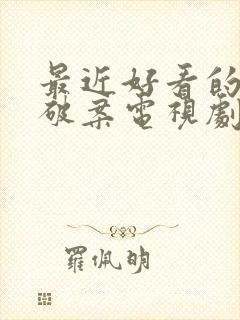 最近好看的
破案電視劇
羅佩明